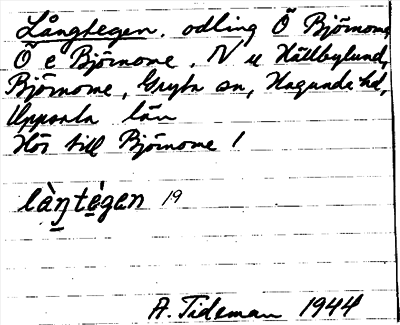 Långtegen, odling Ö Björnome,
Ö e Björnome, N u Hällbylund,
Björnome, Gryta sn, Hagunda hd,
Uppsala län
Hör till Björnome 1
làŋtègen 19
A. Tideman 1944